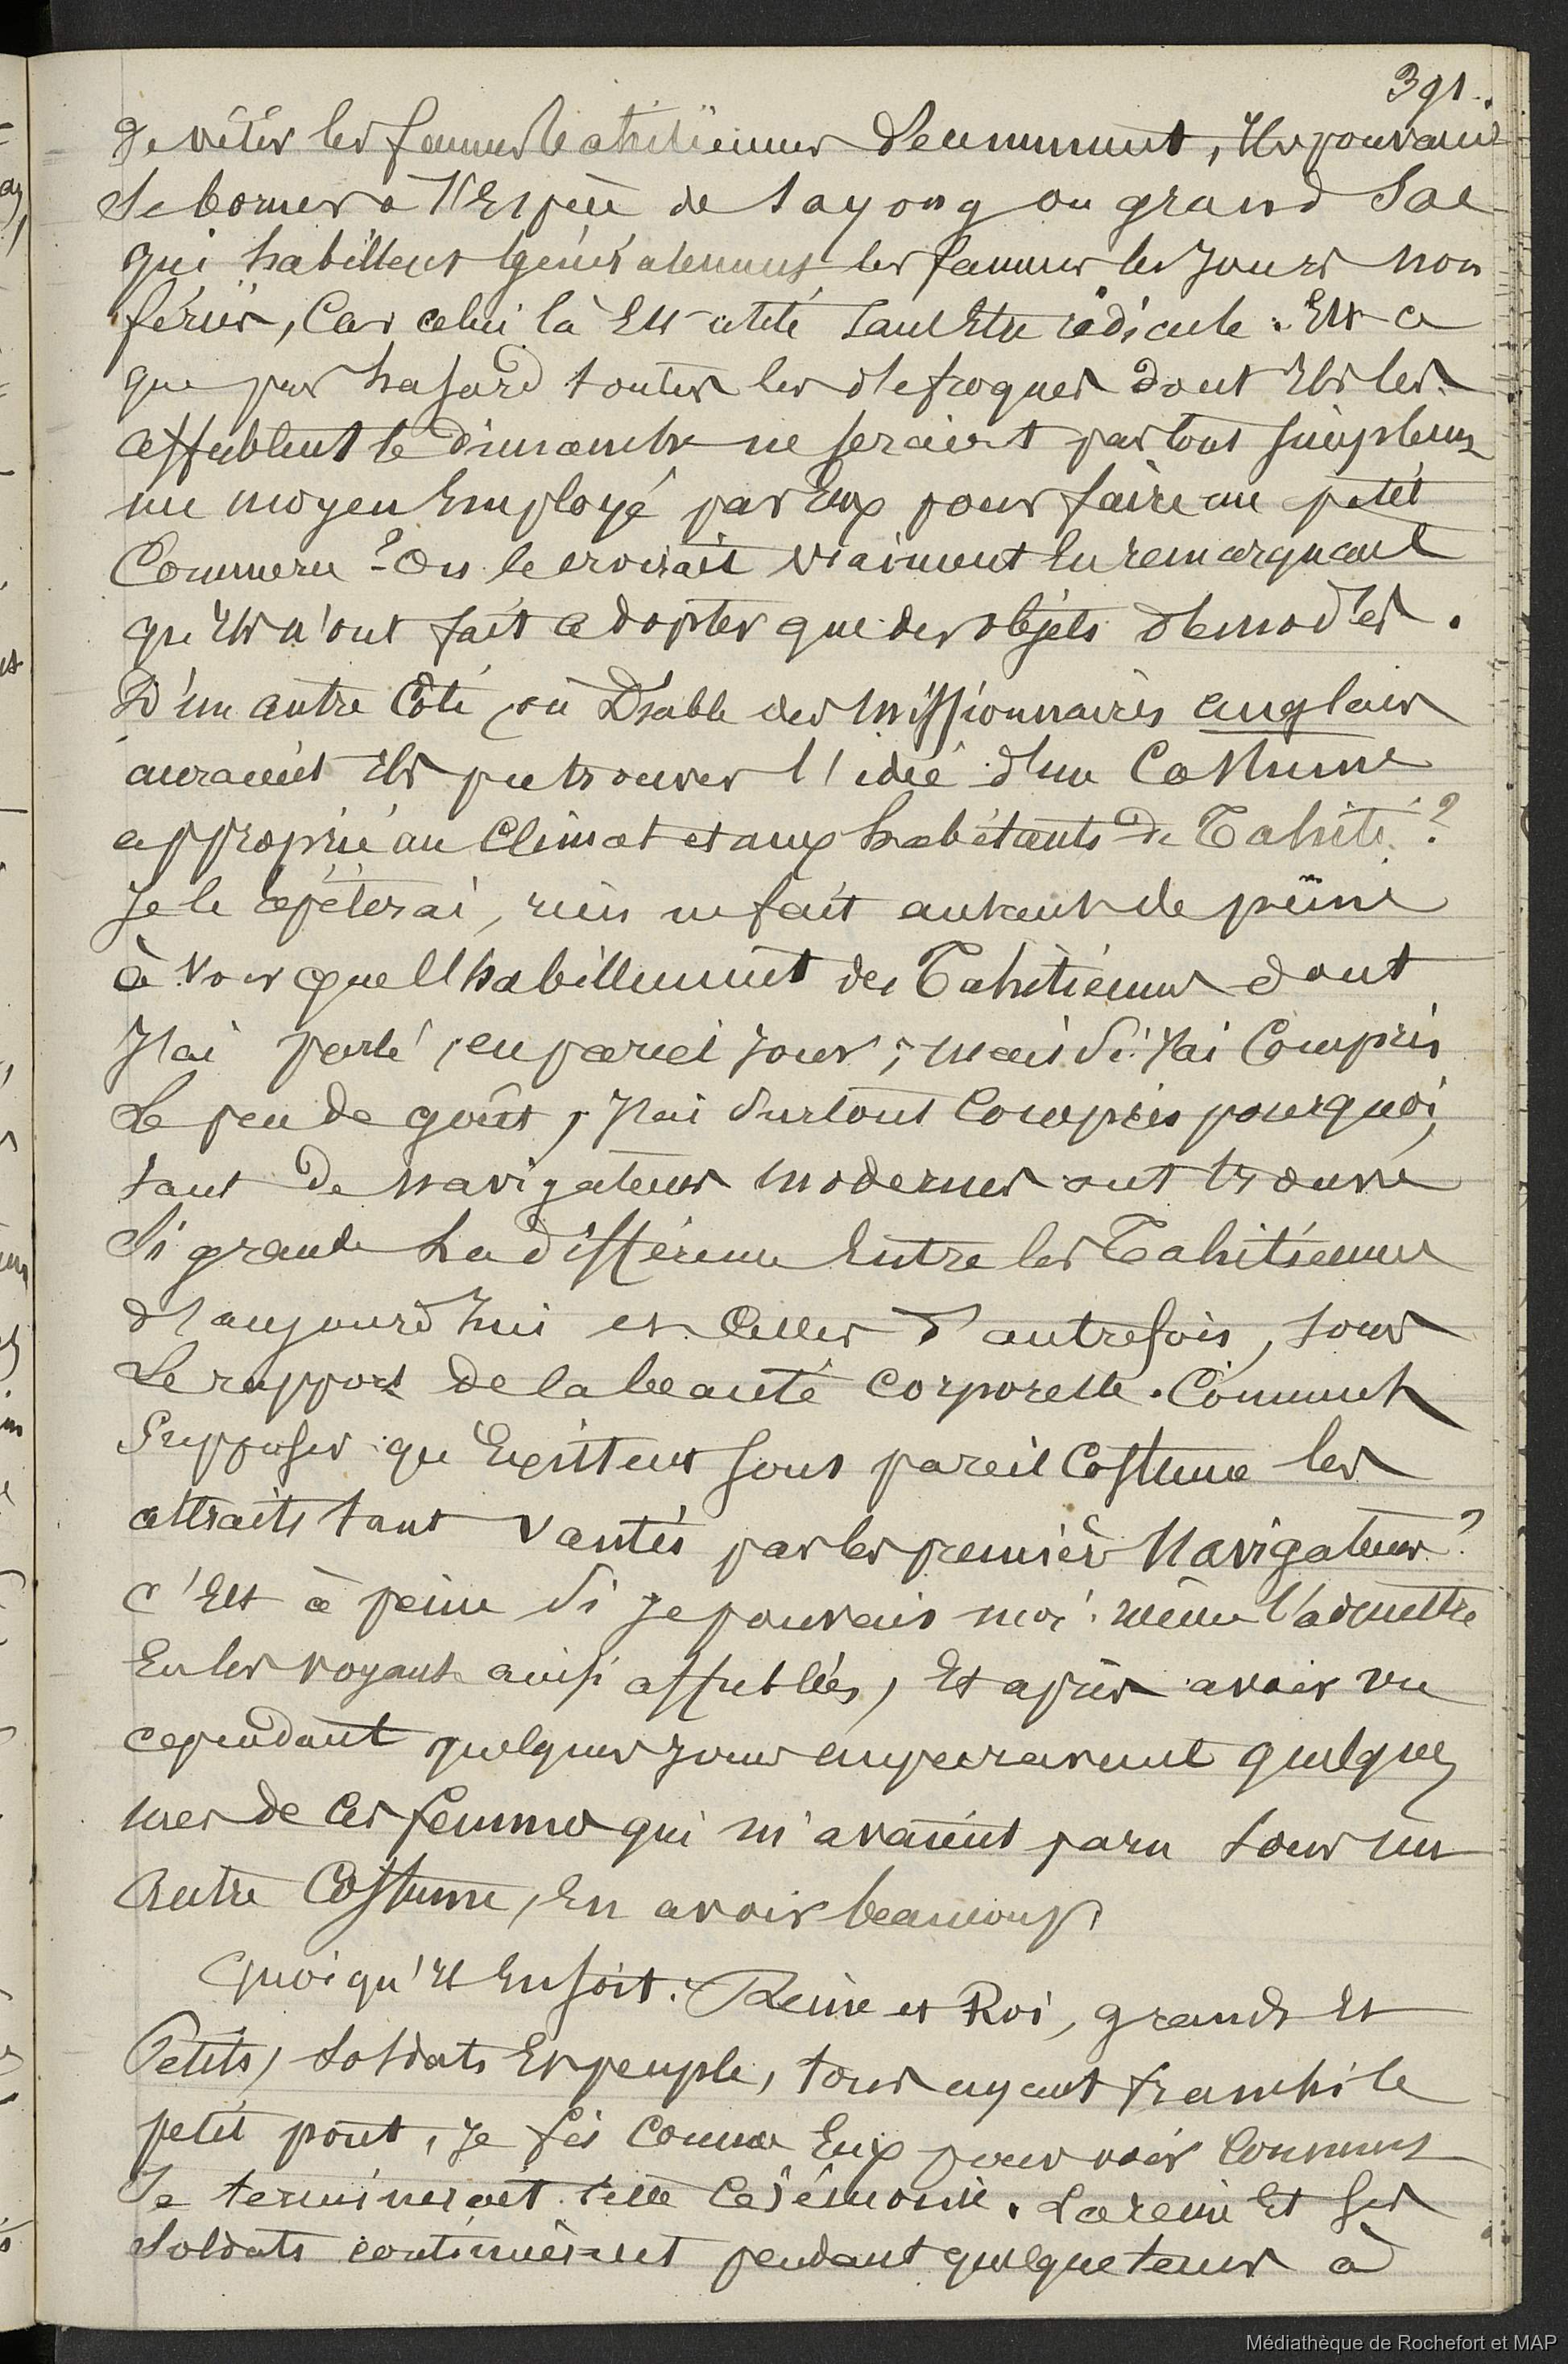 391.
de vêtir les femmes tahitiennes décemment, Ils pouvaient
se borner à l'Espèce de sayong ou grand sac
qui habillent généralement les femmes les jours non
fériés, Car celui là Est utile sans Etre ridicule. Est-ce
que par hasard toutes les défroques dont Ils les
affublent le dimanche ne seraient pas tout simplement
un moyen Employé par Eux pour faire un petit
Commerce ? On le croirait vraiment En remarquant
qu'Ils n'ont fait adopter que des objets démodés.
D'un autre Côté, où Diable des missionnaires anglais
auraient Ils pu trouver l'idée d'un Costume
approprié au Climat et aux habitants de Tahiti ?
Je le répéterai, rien ne fait autant de peine
à voir que l'habillement des Tahitiennes dont
J'ai parlé, en pareil jour ; mais si J'ai Compris
Le peu de goût, J'ai surtout Compris pourquoi,
tant de navigateurs modernes ont trouvé
si grande La différence Entre les Tahitiennes
d'aujourd'hui et Celles d'autrefois, sous
Le rapport de la beauté corporelle. Comment
Supposer qu'Existent sous pareil Costume les
attraits tant vantés par les premiers Navigateurs ?
C'Est à peine si Je pouvais moi-même l'admettre
En les voyant ainsi affublées, Et après avoir vu
cependant quelques jours auparavant quelques
unes de Ces femmes qui m'avaient paru sous un
Autre Costume, En avoir beaucoup.
Quoiqu'Il En soit. Reine et Roi, grands Et
Petits, soldats Et peuple, tous ayant franchi le
petit pont, Je fis Comme Eux pour voir Comment
Se terminerait cette Cérémonie. La reine Et ses
Soldats continuèrent pendant quelque temps à
Médiathèque de Rochefort et MAP